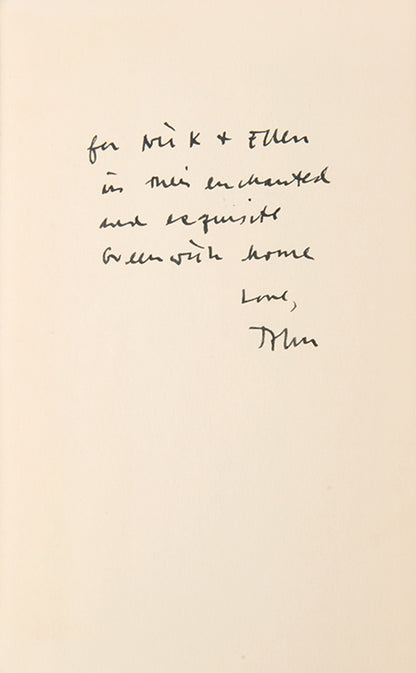 for Nick + Ellen
in their enchanted
and exquisite
Greenwich home
Love,